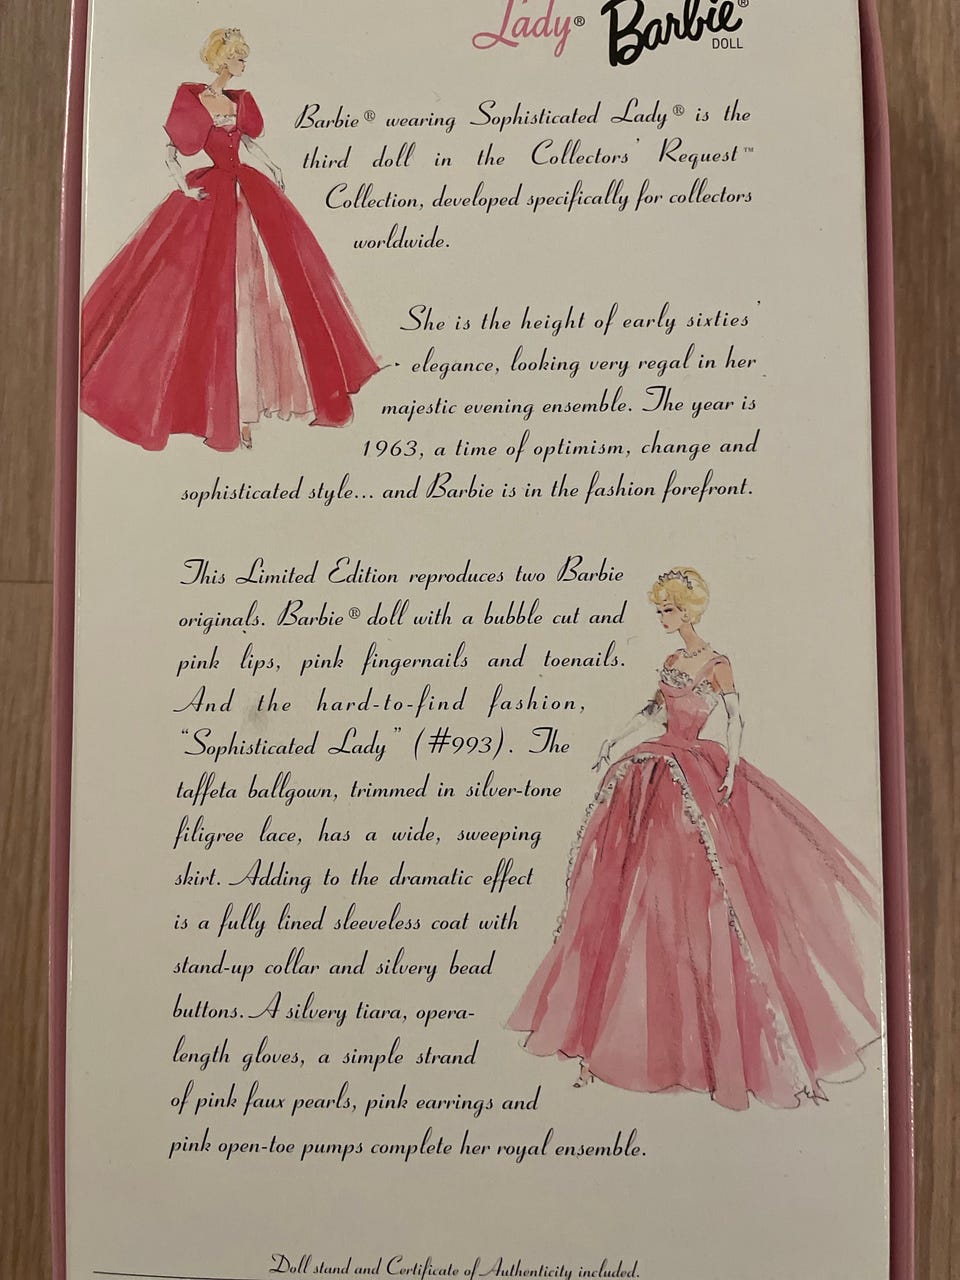 Lady® Barbie®
DOLL
Barbie® wearing Sophisticated Lady® is the
third doll in the Collectors' Request™
Collection, developed specifically for collectors
worldwide.
She is the height of early sixties'
elegance, looking very regal in her
majestic evening ensemble. The year is
1963, a time of optimism, change and
sophisticated style... and Barbie is in the fashion forefront.
This Limited Edition reproduces two Barbie
originals. Barbie® doll with a bubble cut and
pink lips, pink fingernails and toenails.
And the hard-to-find fashion,
"Sophisticated Lady" (#993). The
taffeta ballgown, trimmed in silver-tone
filigree lace, has a wide, sweeping
skirt. Adding to the dramatic effect
is a fully lined sleeveless coat with
stand-up collar and silvery bead
buttons. A silvery tiara, opera-
length gloves, a simple strand
of pink faux pearls, pink earrings and
pink open-toe pumps complete her royal ensemble.
Doll stand and Certificate of Authenticity included.